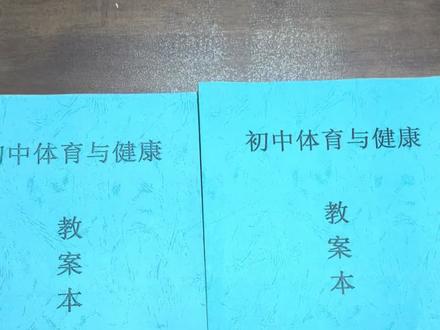 初中体育与健康
教
案
本
初中体育与健康
教
案
本